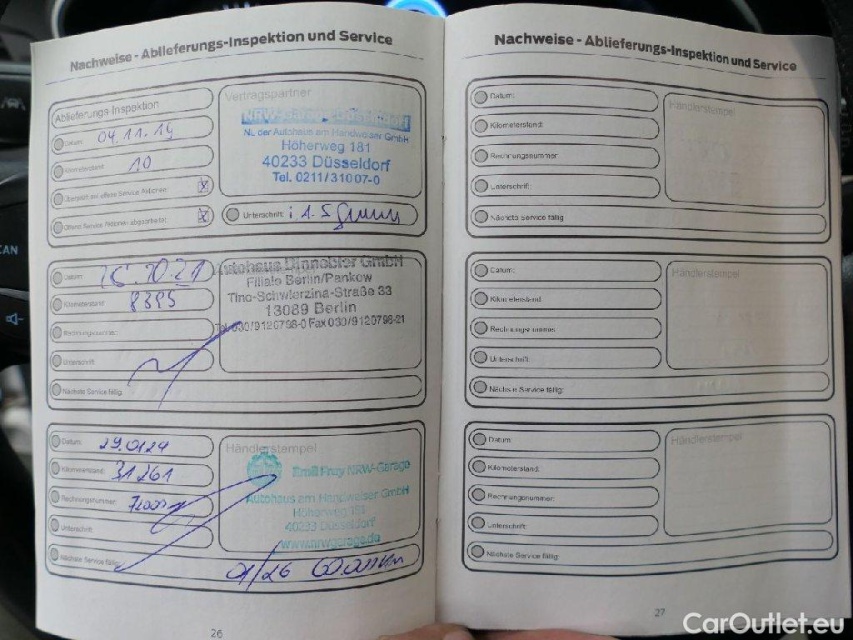 Nachweise - Ablieferungs-Inspektion und Service
Ablieferungs-Inspektion
Datum: 04.11.19
Kilometerstand: 10
Vertragspartner
NL der Autoheim am Handweiser GmbH
Höherweg 181
40233 Düsseldorf
Tel. 0211/31007-0
Unterschrift:
Datum: 15.10.21
Kilometerstand: 8395
Rechnungsnummer:
Unterschrift:
Nächste Service fällig:
Autohaus GmbH
Filiale Berlin/Pankow
Tino-Schwierzina-Straße 33
13089 Berlin
Tel. 030/9120798-0 Fax 030/9120798-21
Datum: 29.01.24
Kilometerstand: 31261
Rechnungsnummer:
Unterschrift:
Nächste Service fällig: 01/26
Händlerstempel
Emil Frey NRW-Garage
Autohaus am Handweiser GmbH
Höherweg 181
40233 Düsseldorf
www.nrwgarage.de
26
Nachweise - Ablieferungs-Inspektion und Service
Datum:
Kilometerstand:
Rechnungsnummer:
Unterschrift:
Nächste Service fällig:
Händlerstempel
Datum:
Kilometerstand:
Rechnungsnummer:
Unterschrift:
Nächste Service fällig:
Händlerstempel
Datum:
Kilometerstand:
Rechnungsnummer:
Unterschrift:
Nächste Service fällig:
Händlerstempel
27
CarOutlet.eu